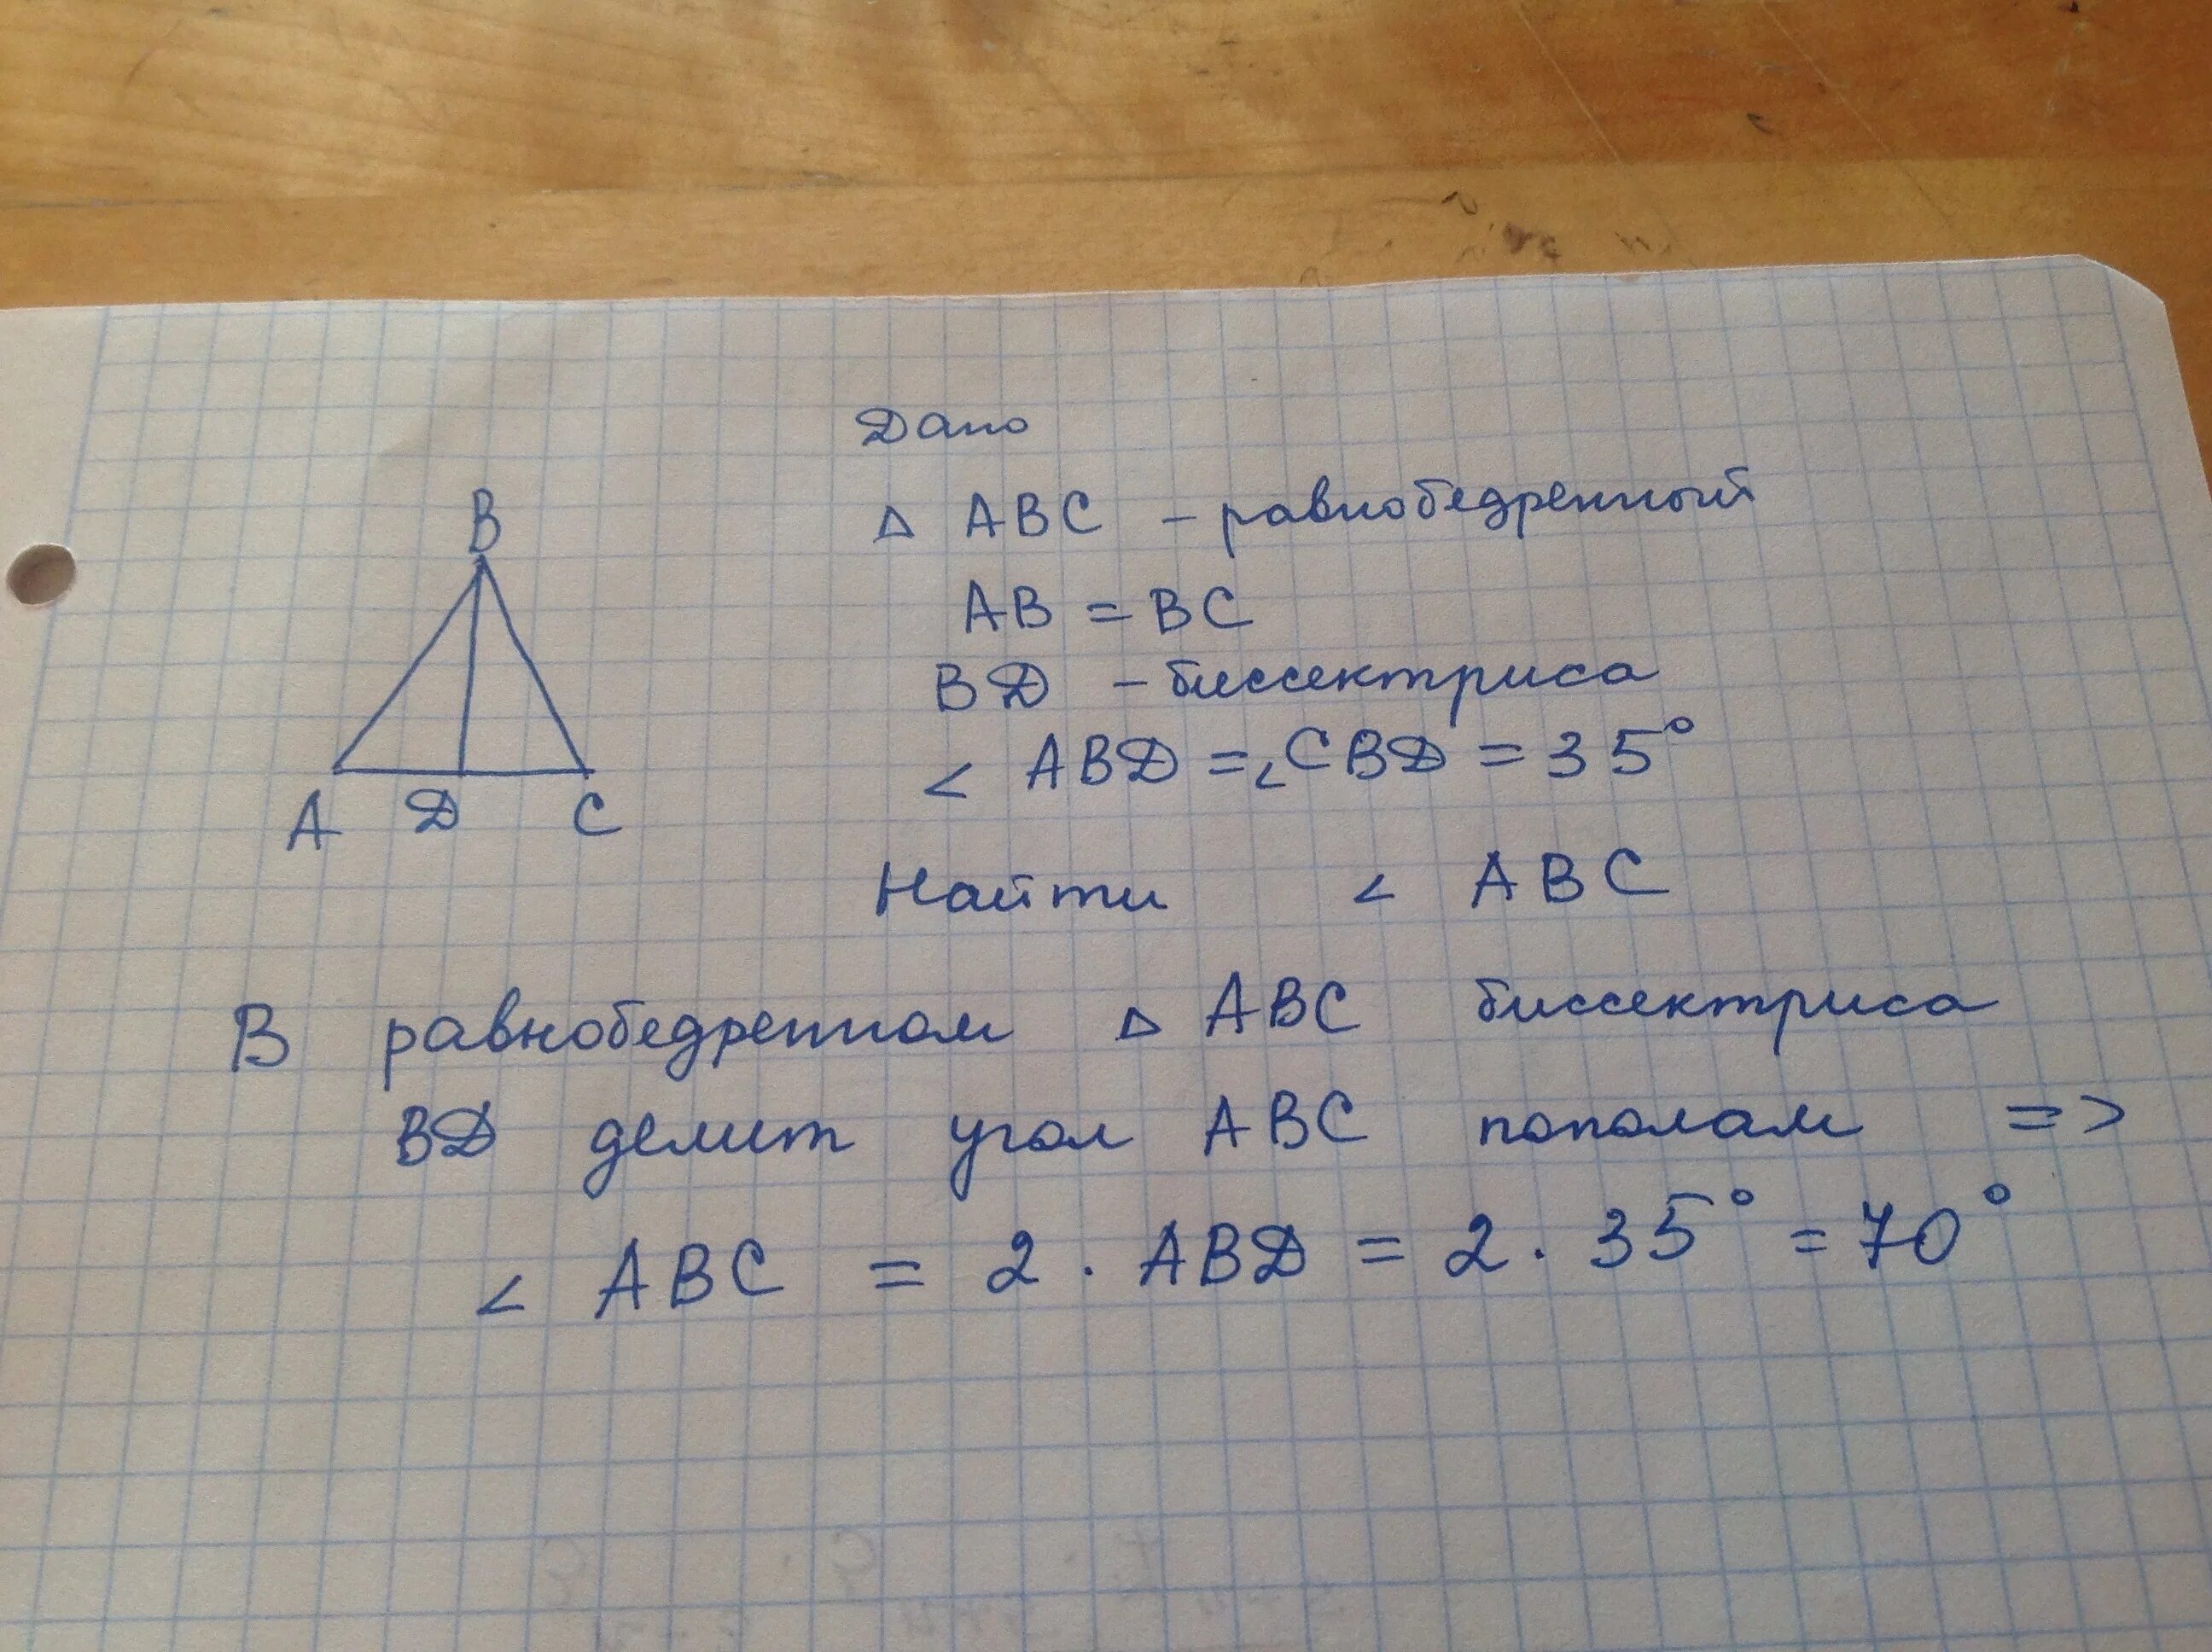 Дано
△ ABC – равнобедренный
AB = BC
BD – биссектриса
< ABD = <CBD = 35°
Найти < ABC
B
A D C
В равнобедренном △ ABC биссектриса
BD делит угол ABC пополам =>
< ABC = 2 · ABD = 2 · 35° = 70°